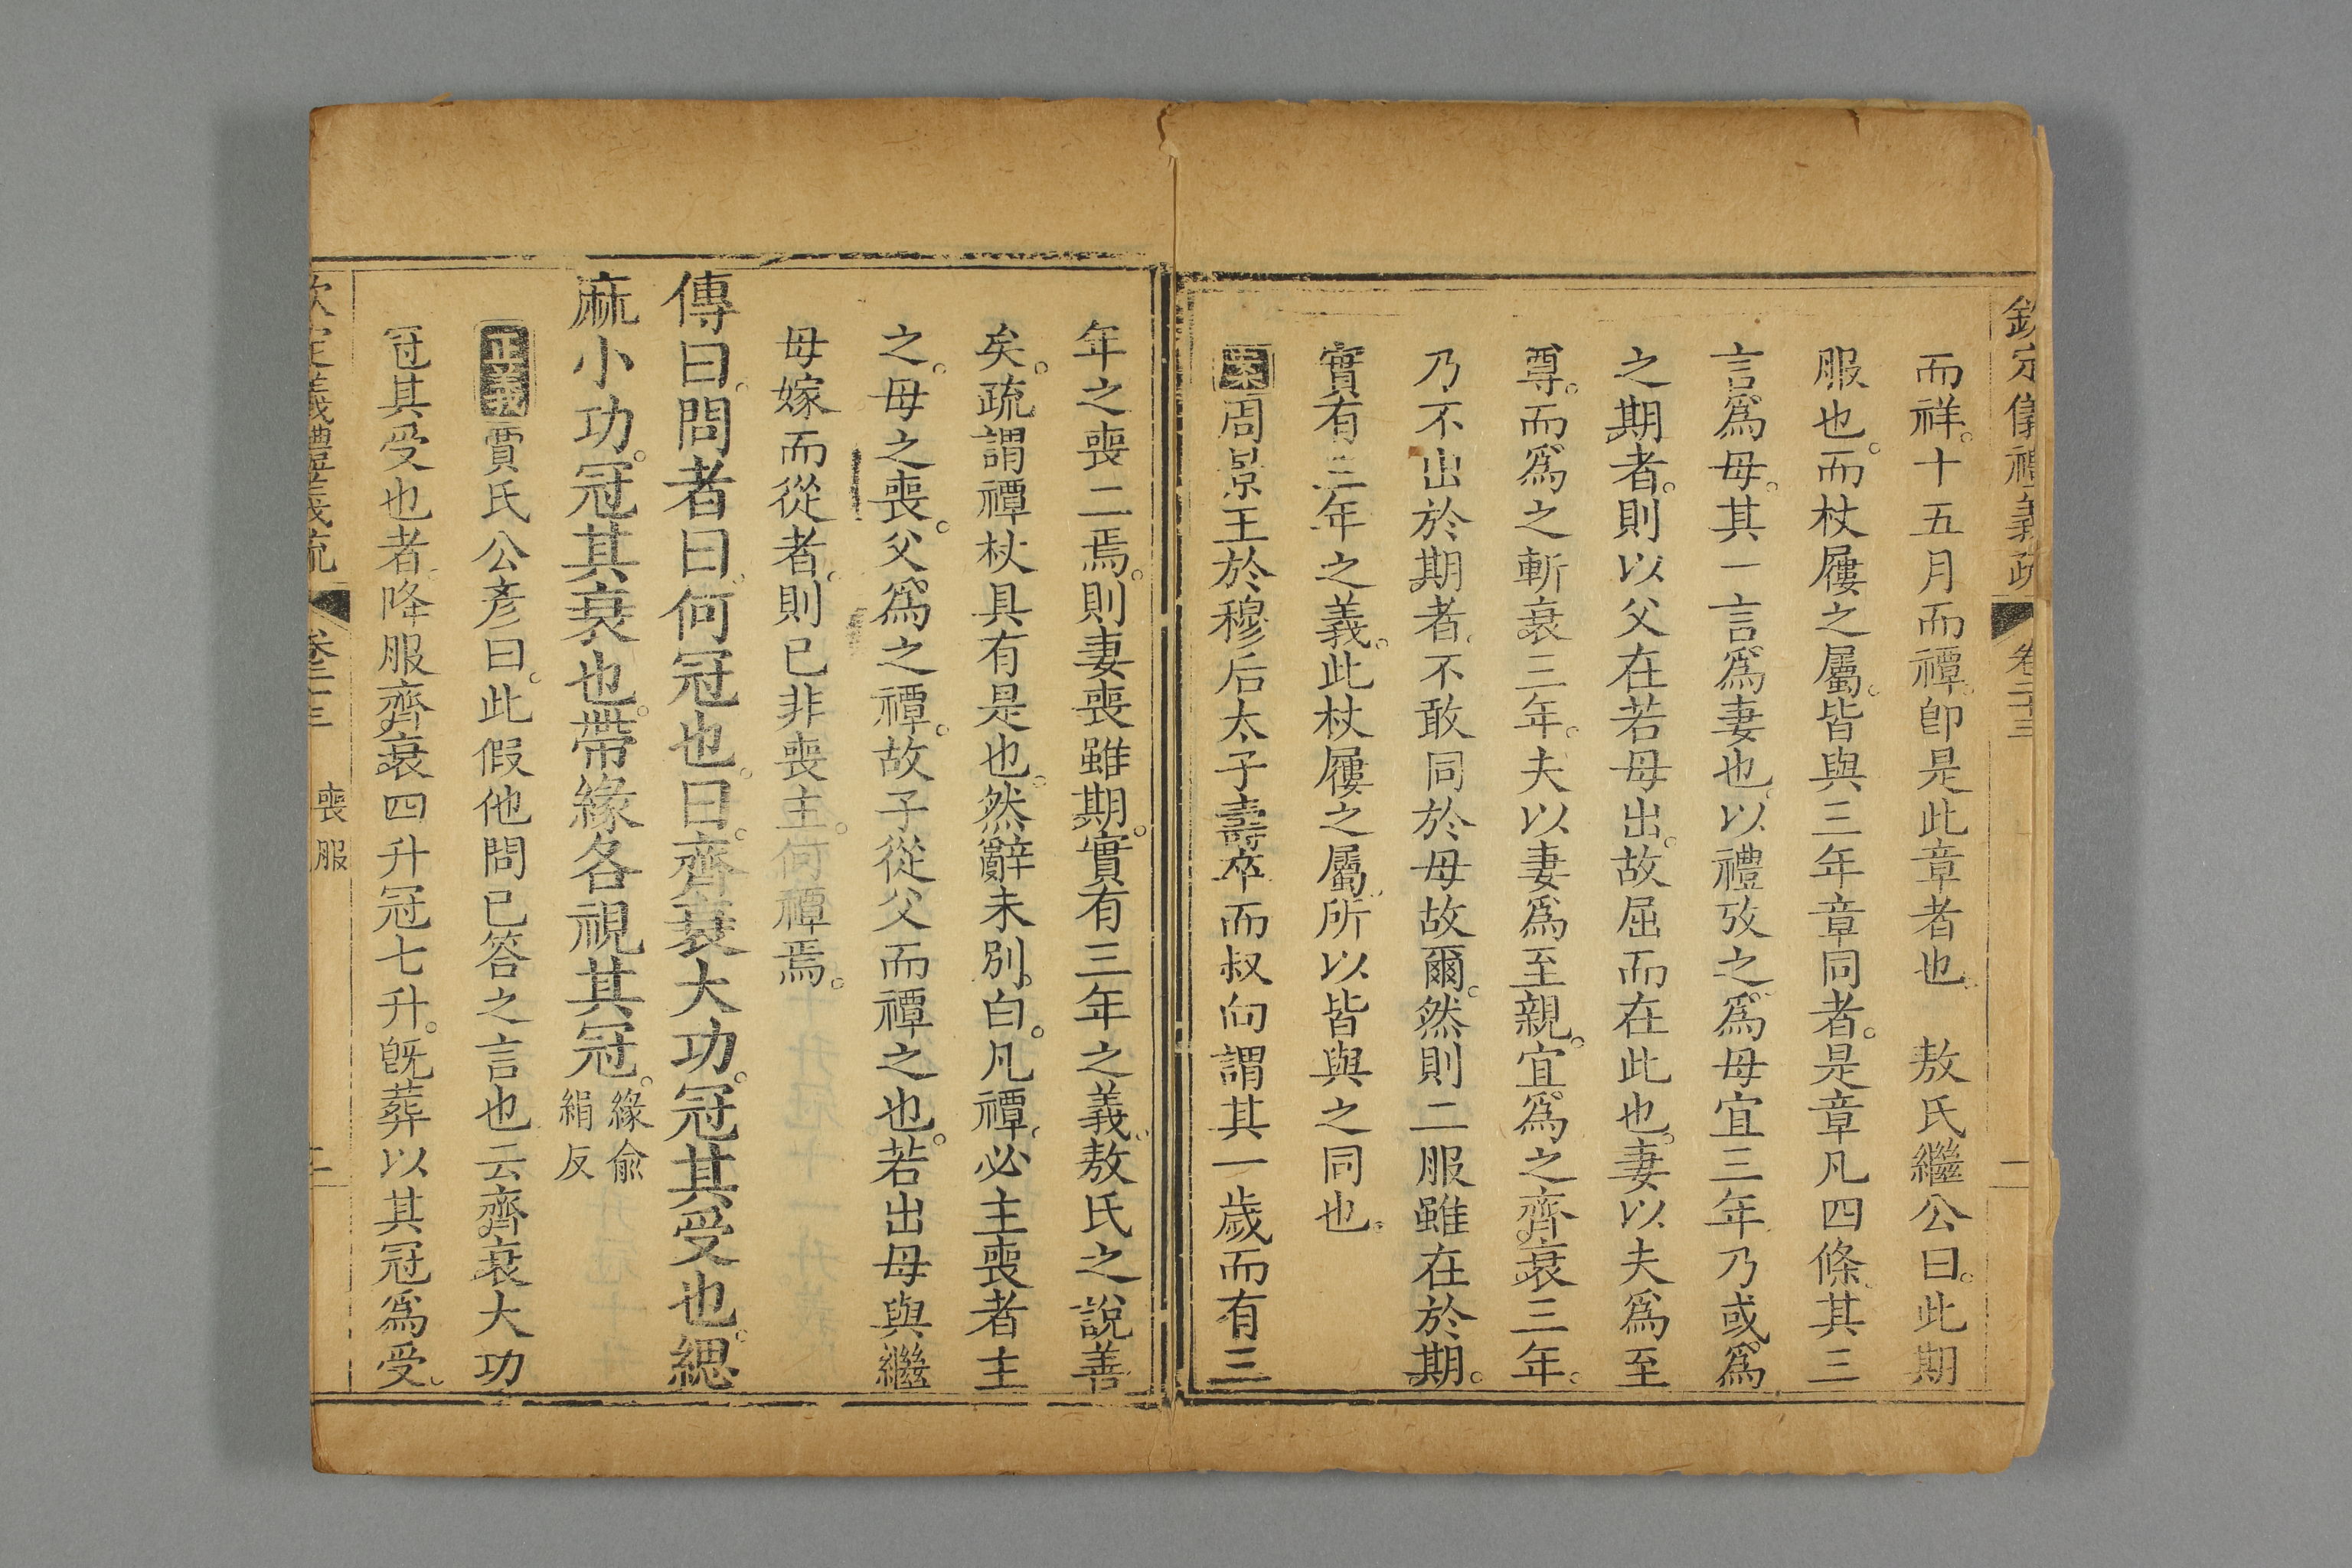 欽定儀禮義疏 卷二十三 二
而祥。十五月而禫。卽是此章者也。 敖氏繼公曰。此期
服也。而杖屨之屬。皆與三年章同者。是章凡四條。其三
言爲母。其一言爲妻也。以禮攷之。爲母宜三年。乃或爲
之期者。則以父在若母出。故屈而在此也。妻以夫爲至
尊。而爲之斬衰三年。夫以妻爲至親。宜爲之齊衰三年。
乃不出於期者。不敢同於母故爾。然則二服雖在於期。
實有三年之義。此杖屨之屬。所以皆與之同也。
案周景王於穆后太子壽卒而叔向謂其一歲而有三
年之喪二焉。則妻喪雖期。實有三年之義。敖氏之說善
矣。疏謂禫杖具有是也。然辭未別白。凡禫。必主喪者主
之。母之喪。父爲之禫。故子從父而禫之也。若出母與繼
母嫁而從者。則已非喪主。何禫焉。
傳曰。問者曰。何冠也。曰。齊衰大功。冠其受也。緦
麻小功。冠其衰也。帶緣各視其冠。緣俞絹反
正義賈氏公彥曰。此假他問已答之言也云齊衰大功
冠其受也者。降服齊衰四升冠七升。旣葬以其冠爲受。
欽定儀禮義疏 卷二十三 喪服 三